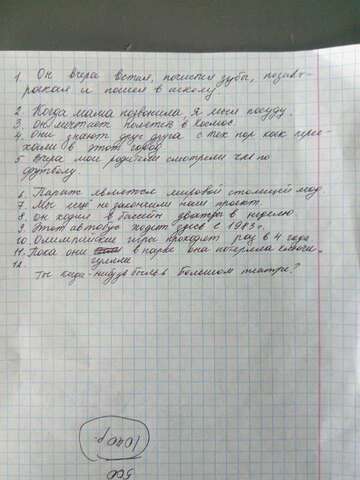 1 Он вчера встал, почистил зубы, позавт-
ракал и пошел в школу
2 Когда мама позвонила, я мыл посуду.
3. Он мечтает полететь в космос
4. Они знают друг друга с тех пор как прие-
хали в этот город
5 Вчера мои родители смотрели чм по
футболу.
6. Париж является мировой столицей мод.
7. Мы ещё не закончили наш проект.
8. он ходил в бассейн дважды в неделю
9. Этот автобус ходит здесь с 1983 г.
10. Олимпийские игры проходят раз в 4 года
11. Пока они в парке она потеряла ключи.
гуляли
12.
Ты когда-нибудь был в большом театре?
1040 р.
500